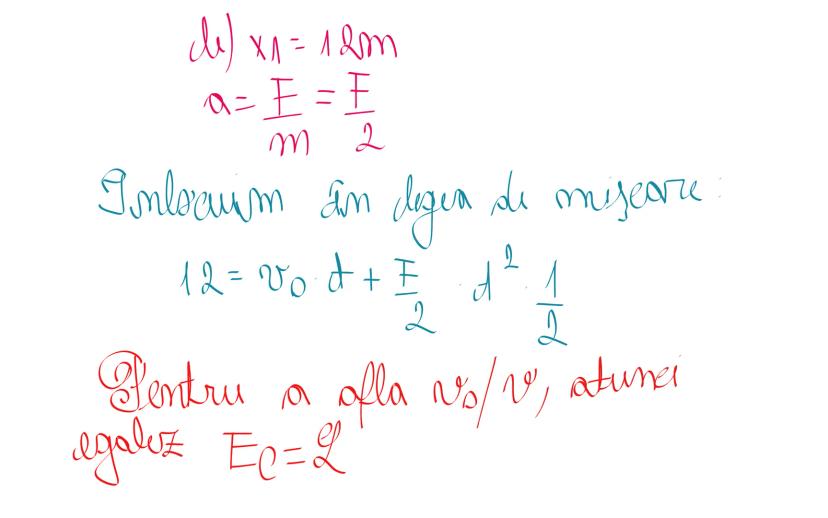 b) x1 = 12m
a = F/m = F/2
Inlocuim în legea de mișcare:
12 = v0 · t + F/2 · t² · 1/2
Pentru a afla v0/v, atunci
egalez Ec = L